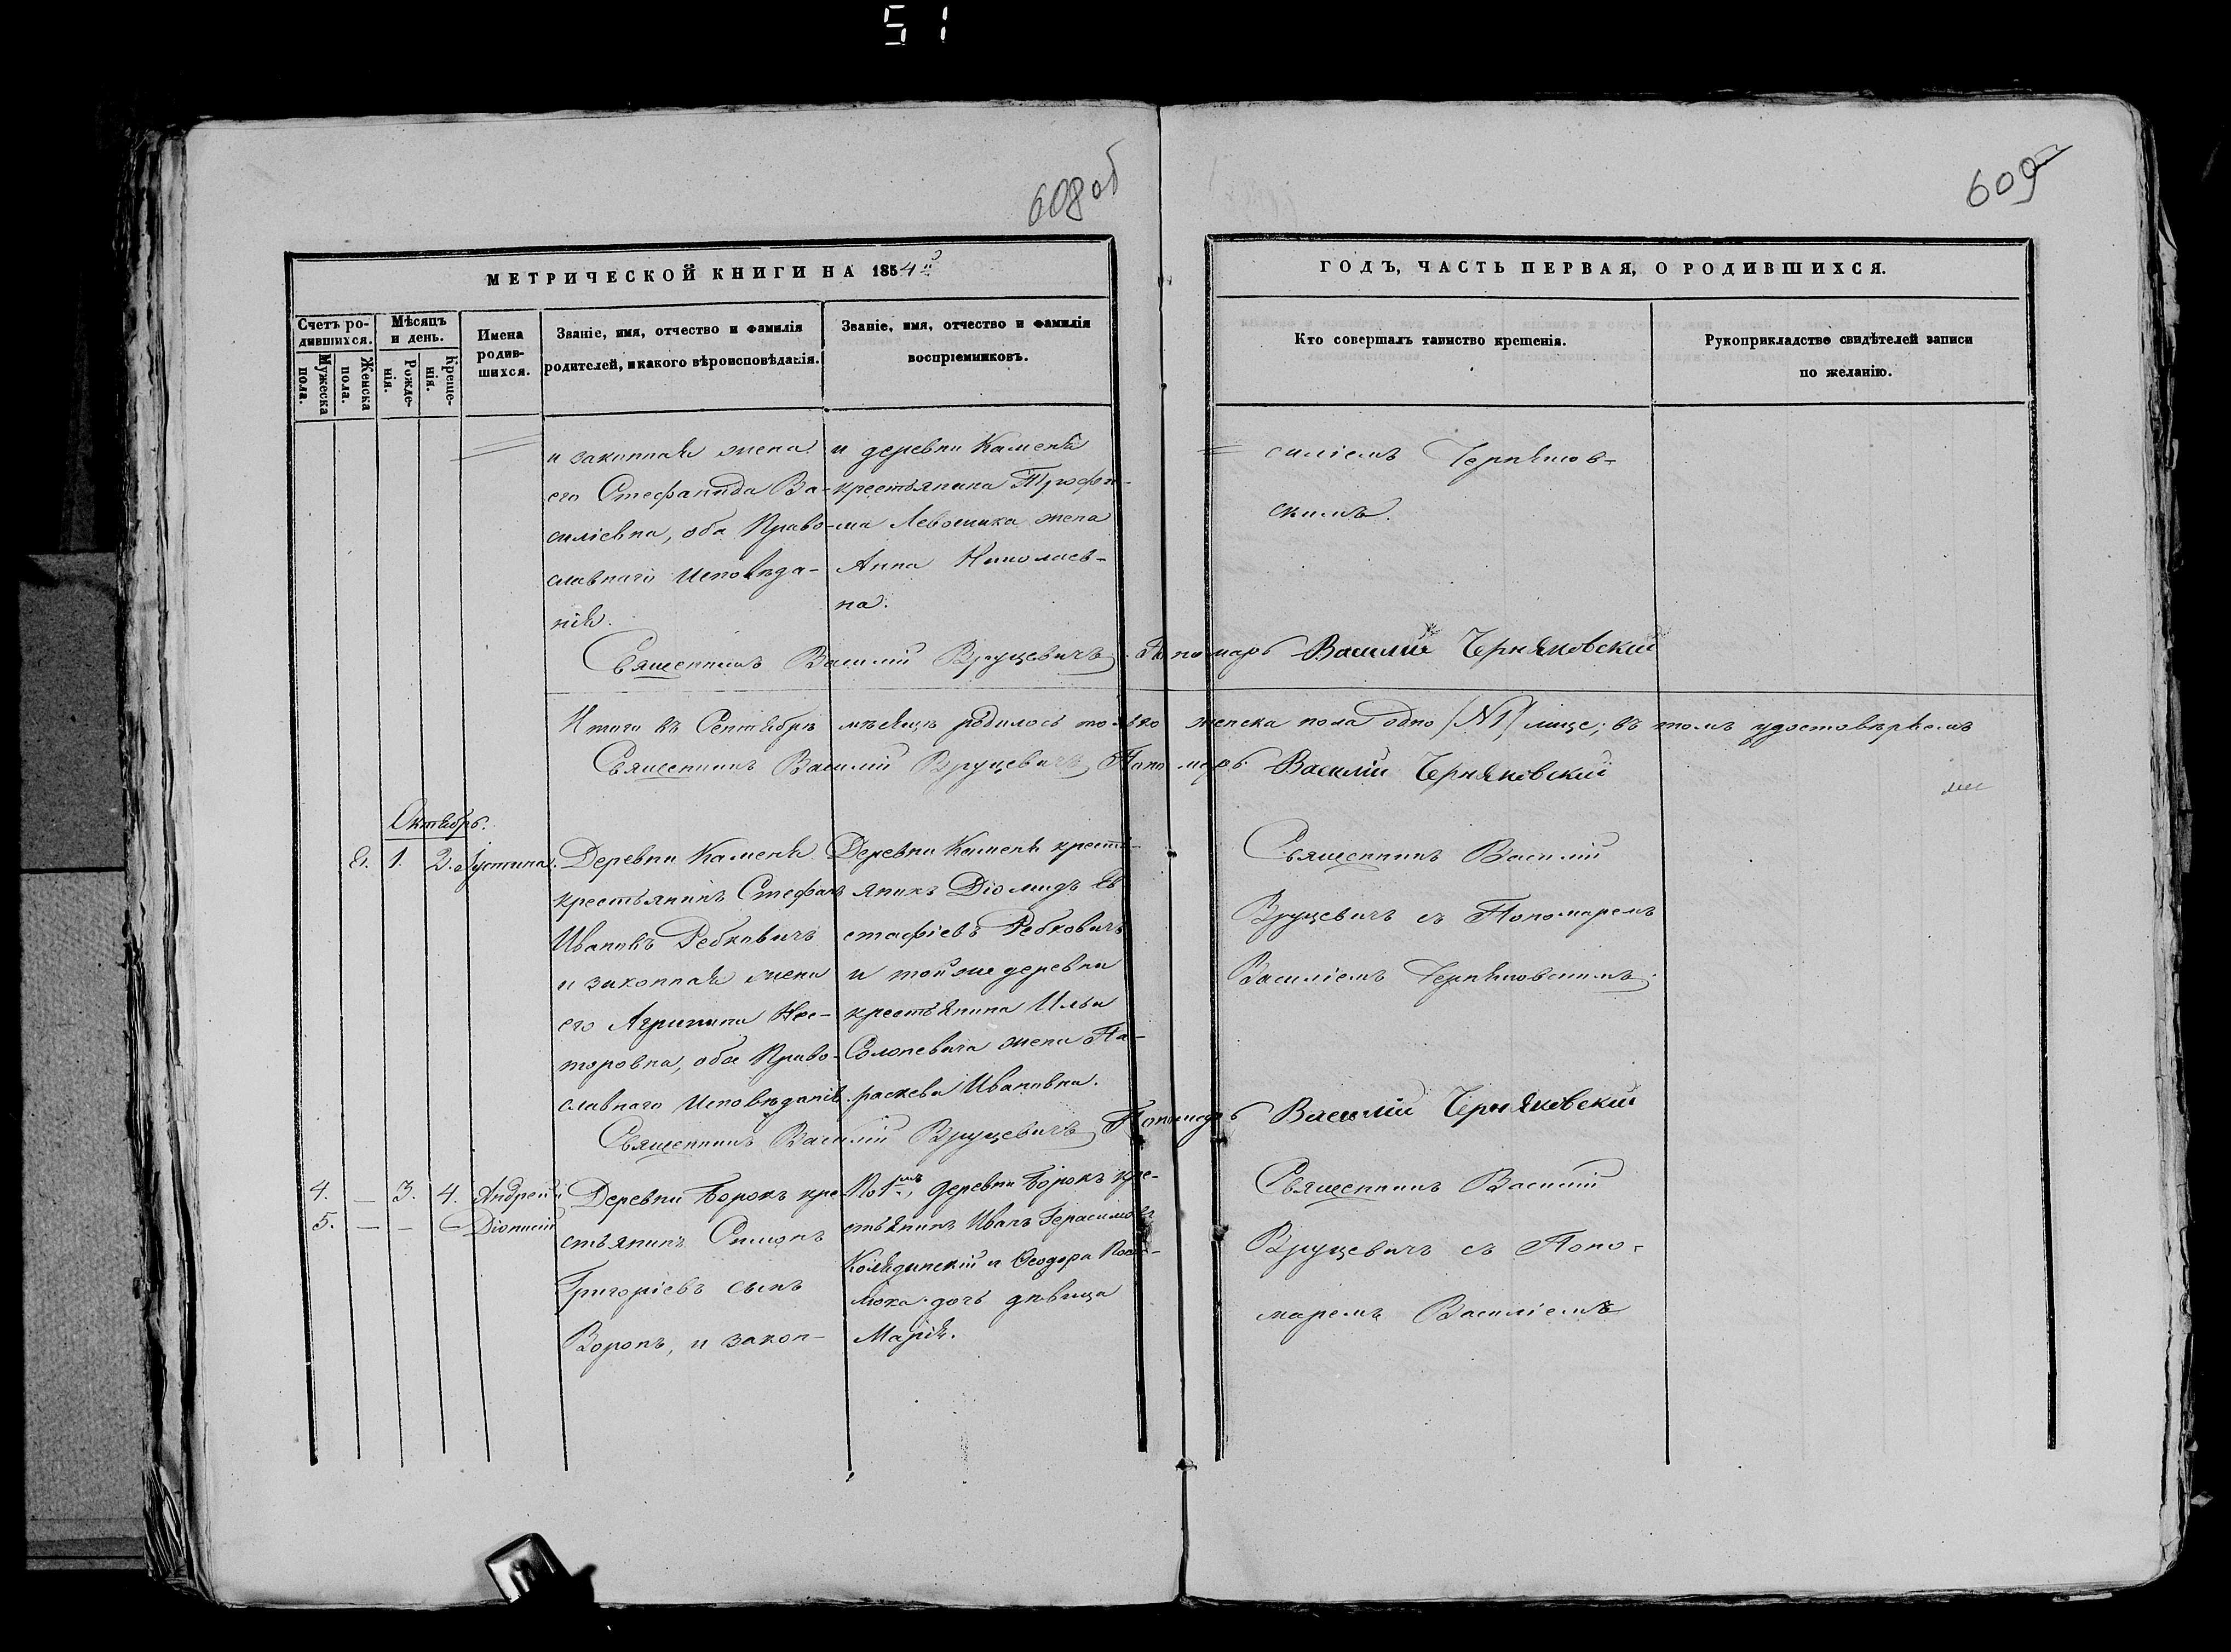 51
608 об
609
МЕТРИЧЕСКОЙ КНИГИ НА 1854й
ГОДЪ, ЧАСТЬ ПЕРВАЯ, О РОДИВШИХСЯ.
Счетъ ро-
дившихся.
Мужеска
пола.
Женска
пола.
Мѣсяцъ
и день.
Рожде-
нія.
Креще-
нія.
Имена
родив-
шихся.
Званіе, имя, отчество и фамилія
родителей, и какого вѣроисповѣданія.
Званіе, имя, отчество и фамилія
воспріемниковъ.
Кто совершалъ таинство крещенія.
Рукоприкладство свидѣтелей записи
по желанію.
и законная жена
его Стефанида Ва-
силіевна, оба Право-
славнаго Исповѣда-
нія.
и деревни Камень
крестьянина Трофи-
ма Левоника жена
Анна Николаев-
на.
силіемъ Черняков-
скимъ.
Священникъ Василій Вруцевичъ, Пономарь Василій Черняковскій
Итого въ Сентябрѣ мѣсяцѣ родилось только женска пола одно /№1/ лице; въ томъ удостовѣряемъ
Священникъ Василій Вруцевичъ, Пономарь Василій Черняковскій
Октябрь.
8. 1. 2. Іустина.
Деревни Камень
крестьянинъ Стефанъ
Ивановъ Ребковичъ
и законная жена
его Агрипина Нес-
торовна, оба Право-
славнаго Исповѣданія
Деревни Камень кресть-
янинъ Діомидъ Ев-
стафіевъ Ребковичъ
и той же деревни
крестьянина Ильи
Солоневича жена Па-
раскева Ивановна.
Священникъ Василій
Вруцевичъ съ Пономаремъ
Василіемъ Черняковскимъ.
Священникъ Василій Вруцевичъ, Пономарь Василій Черняковскій
4. — 3. 4. Андрей
5. — — Діонисій
Деревни Борокъ кре-
стьянинъ Симонъ
Григоріевъ сынъ
Воронъ, и закон-
деревни Борокъ кре-
стьянинъ Иванъ Герасимовъ
Колядинскій и Ѳеодора
дочь дѣвица
Марія.
Священникъ Василій
Вруцевичъ съ Поно-
маремъ Василіемъ